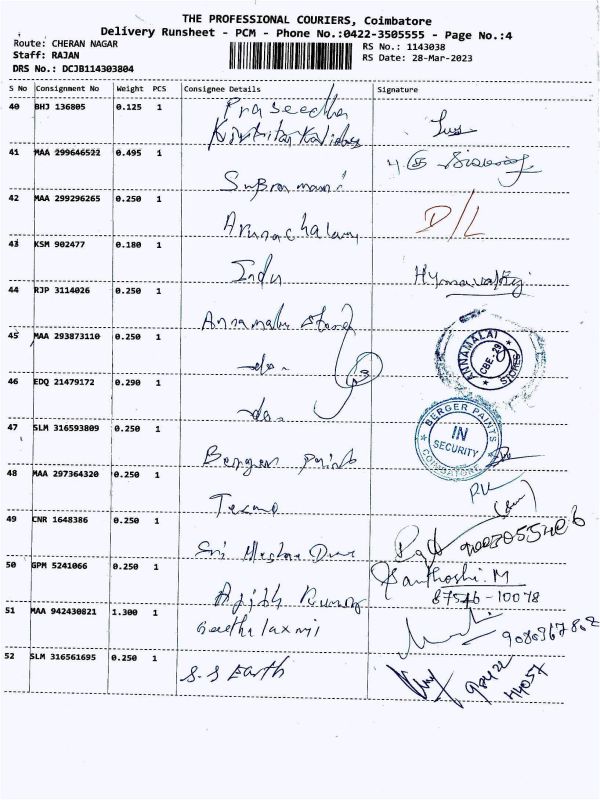 THE PROFESSIONAL COURIERS, Coimbatore
Delivery Runsheet - PCM - Phone No.:0422-3505555 - Page No.:4
Route: CHERAN NAGAR
RS No.: 1143038
Staff: RAJAN
RS Date: 28-Mar-2023
DRS No.: DCJB114303804
S No Consignment No Weight PCS Consignee Details Signature
40 BHJ 136805 0.125 1 Praseedha
41 MAA 299646522 0.495 1
Subramani
42 MAA 299296265 0.250 1 D/L
Arunachalam
43 KSM 902477 0.180 1
Indu
44 RJP 3114026 0.250 1
Annamalai
45 MAA 293873110 0.250 1 ANNAMALAI STORES CBE-29
-do-
46 EDQ 21479172 0.290 1
-do-
47 SLM 316593809 0.250 1 BERGER PAINTS IN SECURITY COIMBATORE
Berger paints
48 MAA 297364320 0.250 1
49 CNR 1648386 0.250 1
Sri
50 GPM 5241066 0.250 1 Santhoshi.M
Ajith Kumar 87546-10078
51 MAA 942430821 1.300 1 Geetha laxmi
52 SLM 316561695 0.250 1 S.S Earth 98422
44057